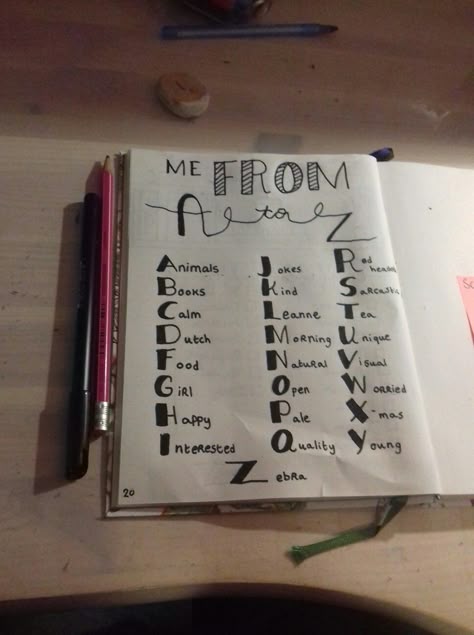 ME FROM
A to Z
Animals
Books
Calm
Dutch
Food
Girl
Happy
Interested
Jokes
Kind
Leanne
Morning
Natural
Open
Pale
Quality
Red
headed
Sarcastic
Tea
Unique
Visual
Worried
X-mas
Young
Zebra
20